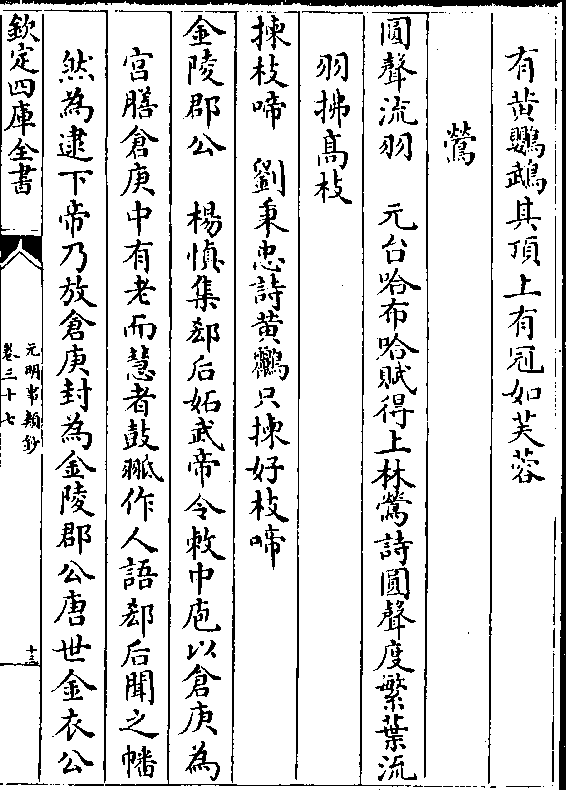 有黄鸚鵡其頂上有冠如芙蓉
鶯
圓聲流羽　元台哈布哈賦得上林鶯詩圓聲度繁葉流
羽拂髙枝
揀枝啼　劉秉忠詩黄鸝只揀好枝啼
金陵郡公　楊慎集郄后妬武帝令敕中庖以倉庚為
宮膳倉庚中有老而慧者鼓翄作人語郄后聞之幡
然為逮下帝乃放倉庚封為金陵郡公唐世金衣公
欽定四庫全書
元明事類鈔
卷三十七
十三